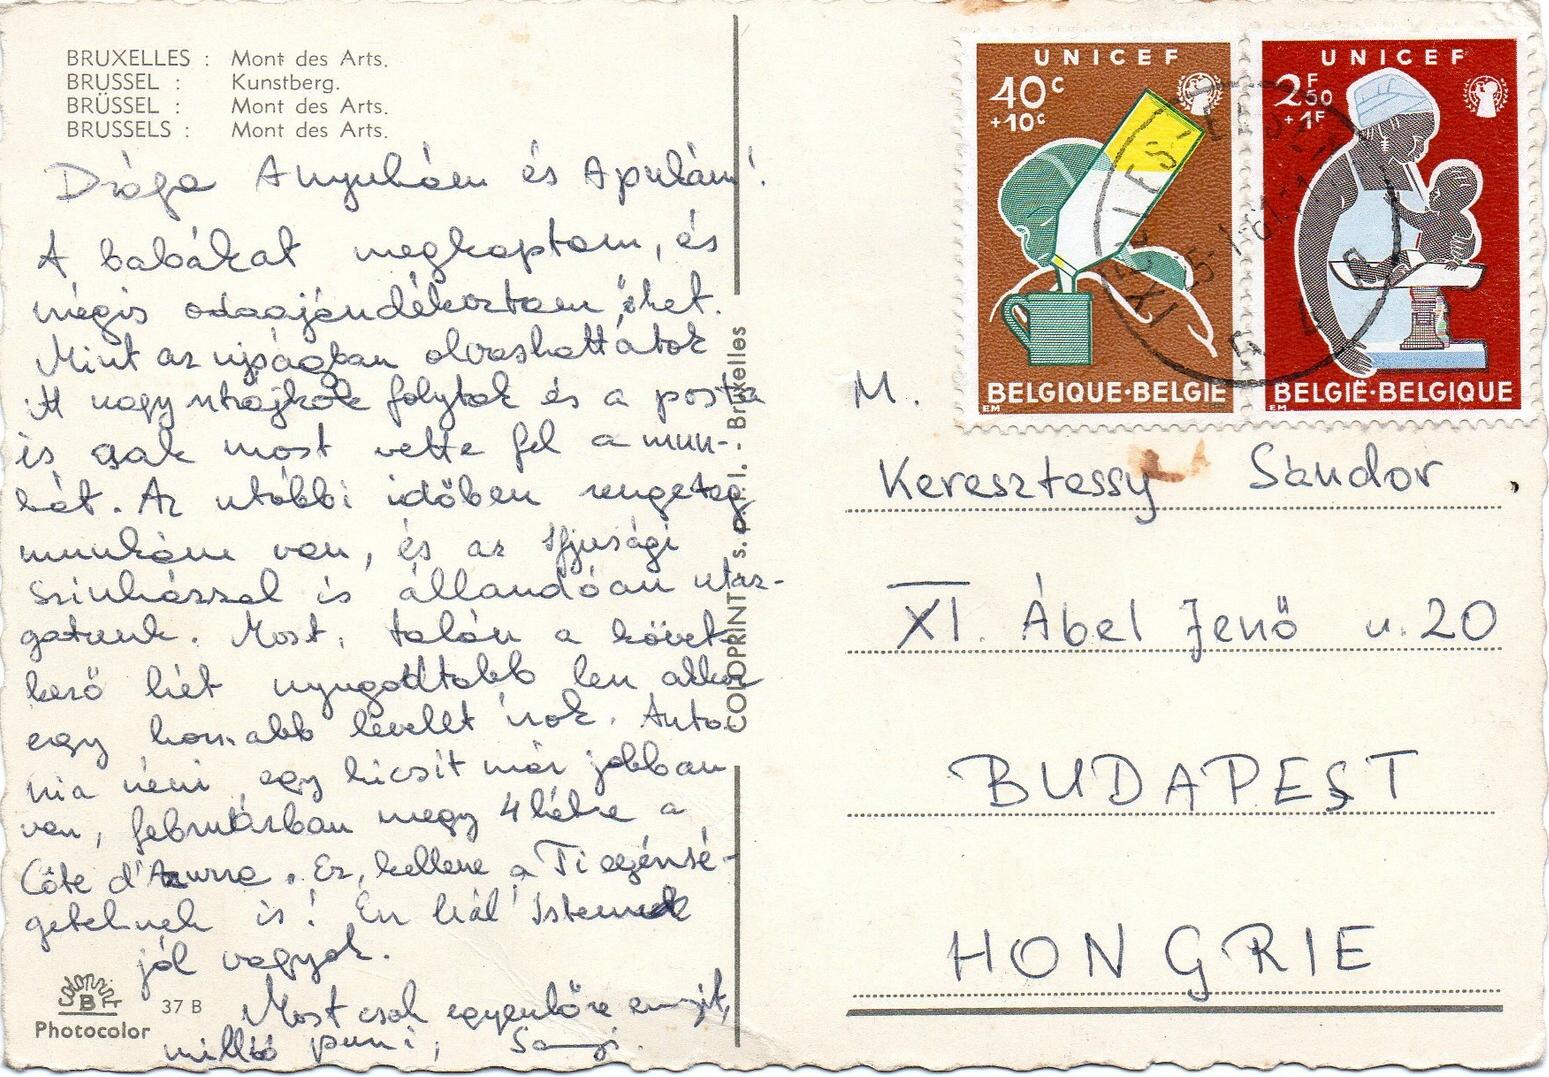 BRUXELLES : Mont des Arts.
BRUSSEL : Kunstberg.
BRÜSSEL : Mont des Arts.
BRUSSELS : Mont des Arts.
Drága Anyukám és Apukám!
A babákat megkaptam, és
mégis odaajándékoztam őket.
Mint az ujságban olvashattátok
itt nagy sztrájkok folytak és a posta
is csak most vette fel a mun-
kát. Az utóbbi időben rengeteg
munkám van, és az Ifjusági
Szinházzal is állandóan utaz-
gatunk. Most, talán a követ-
kező hét nyugodtabb len akkor
egy hosszabb levelet irok. Anto-
nia néni egy kicsit már jobban
van, februárban megy 4 hétre a
Côte d'Azurre. Ez kellene a Ti egészsé-
geteknek is! Én hál' Istennek
jól vagyok.
Most csak egyenlőre ennyit,
millió puszi,
COLOPRINT s. p. r. l. - Bruxelles
37 B
Photocolor
UNICEF
40 c
+10c
BELGIQUE·BELGIE
EM
UNICEF
2 F 50
+1F
BELGIË·BELGIQUE
EM
M.
Keresztessy Sándor
XI. Ábel Jenő u. 20
BUDAPEST
HONGRIE